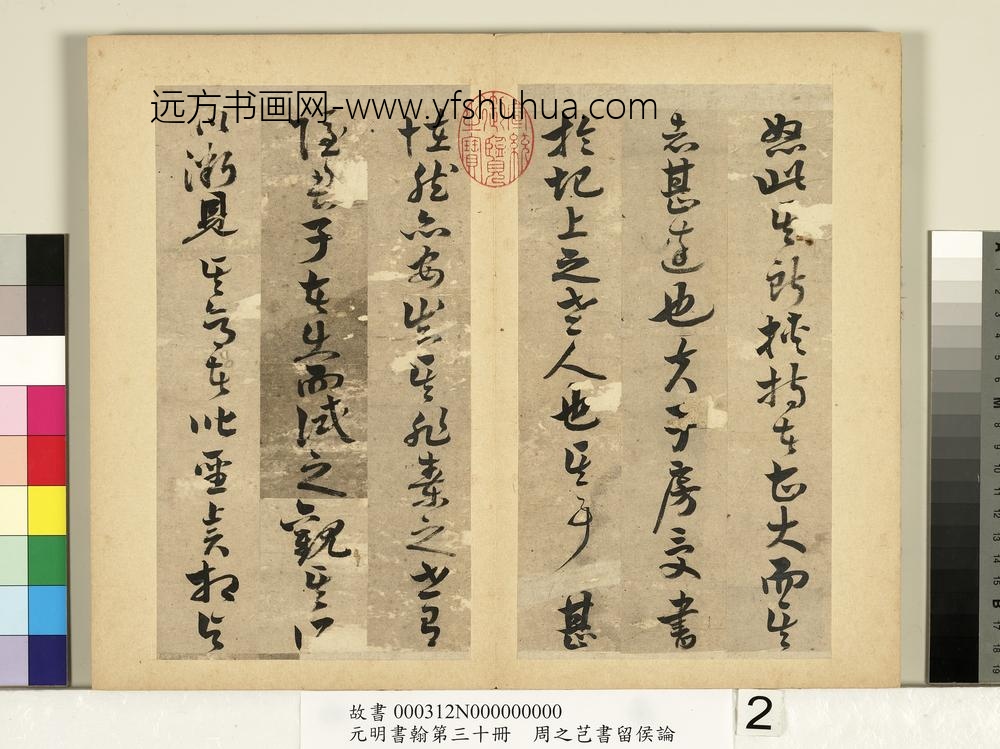 远方书画网-www.yfshuhua.com
怒此其所挾持者甚大而其
志甚遠也夫子房受書
於圯上之老人也其事甚
怪然亦安知其非秦之世有
隱君子者出而試之觀其所
以微見其意者皆聖賢相與
宣統御覽之寶
故書 000312N000000000
元明書翰第三十冊 周之芑書留侯論
2